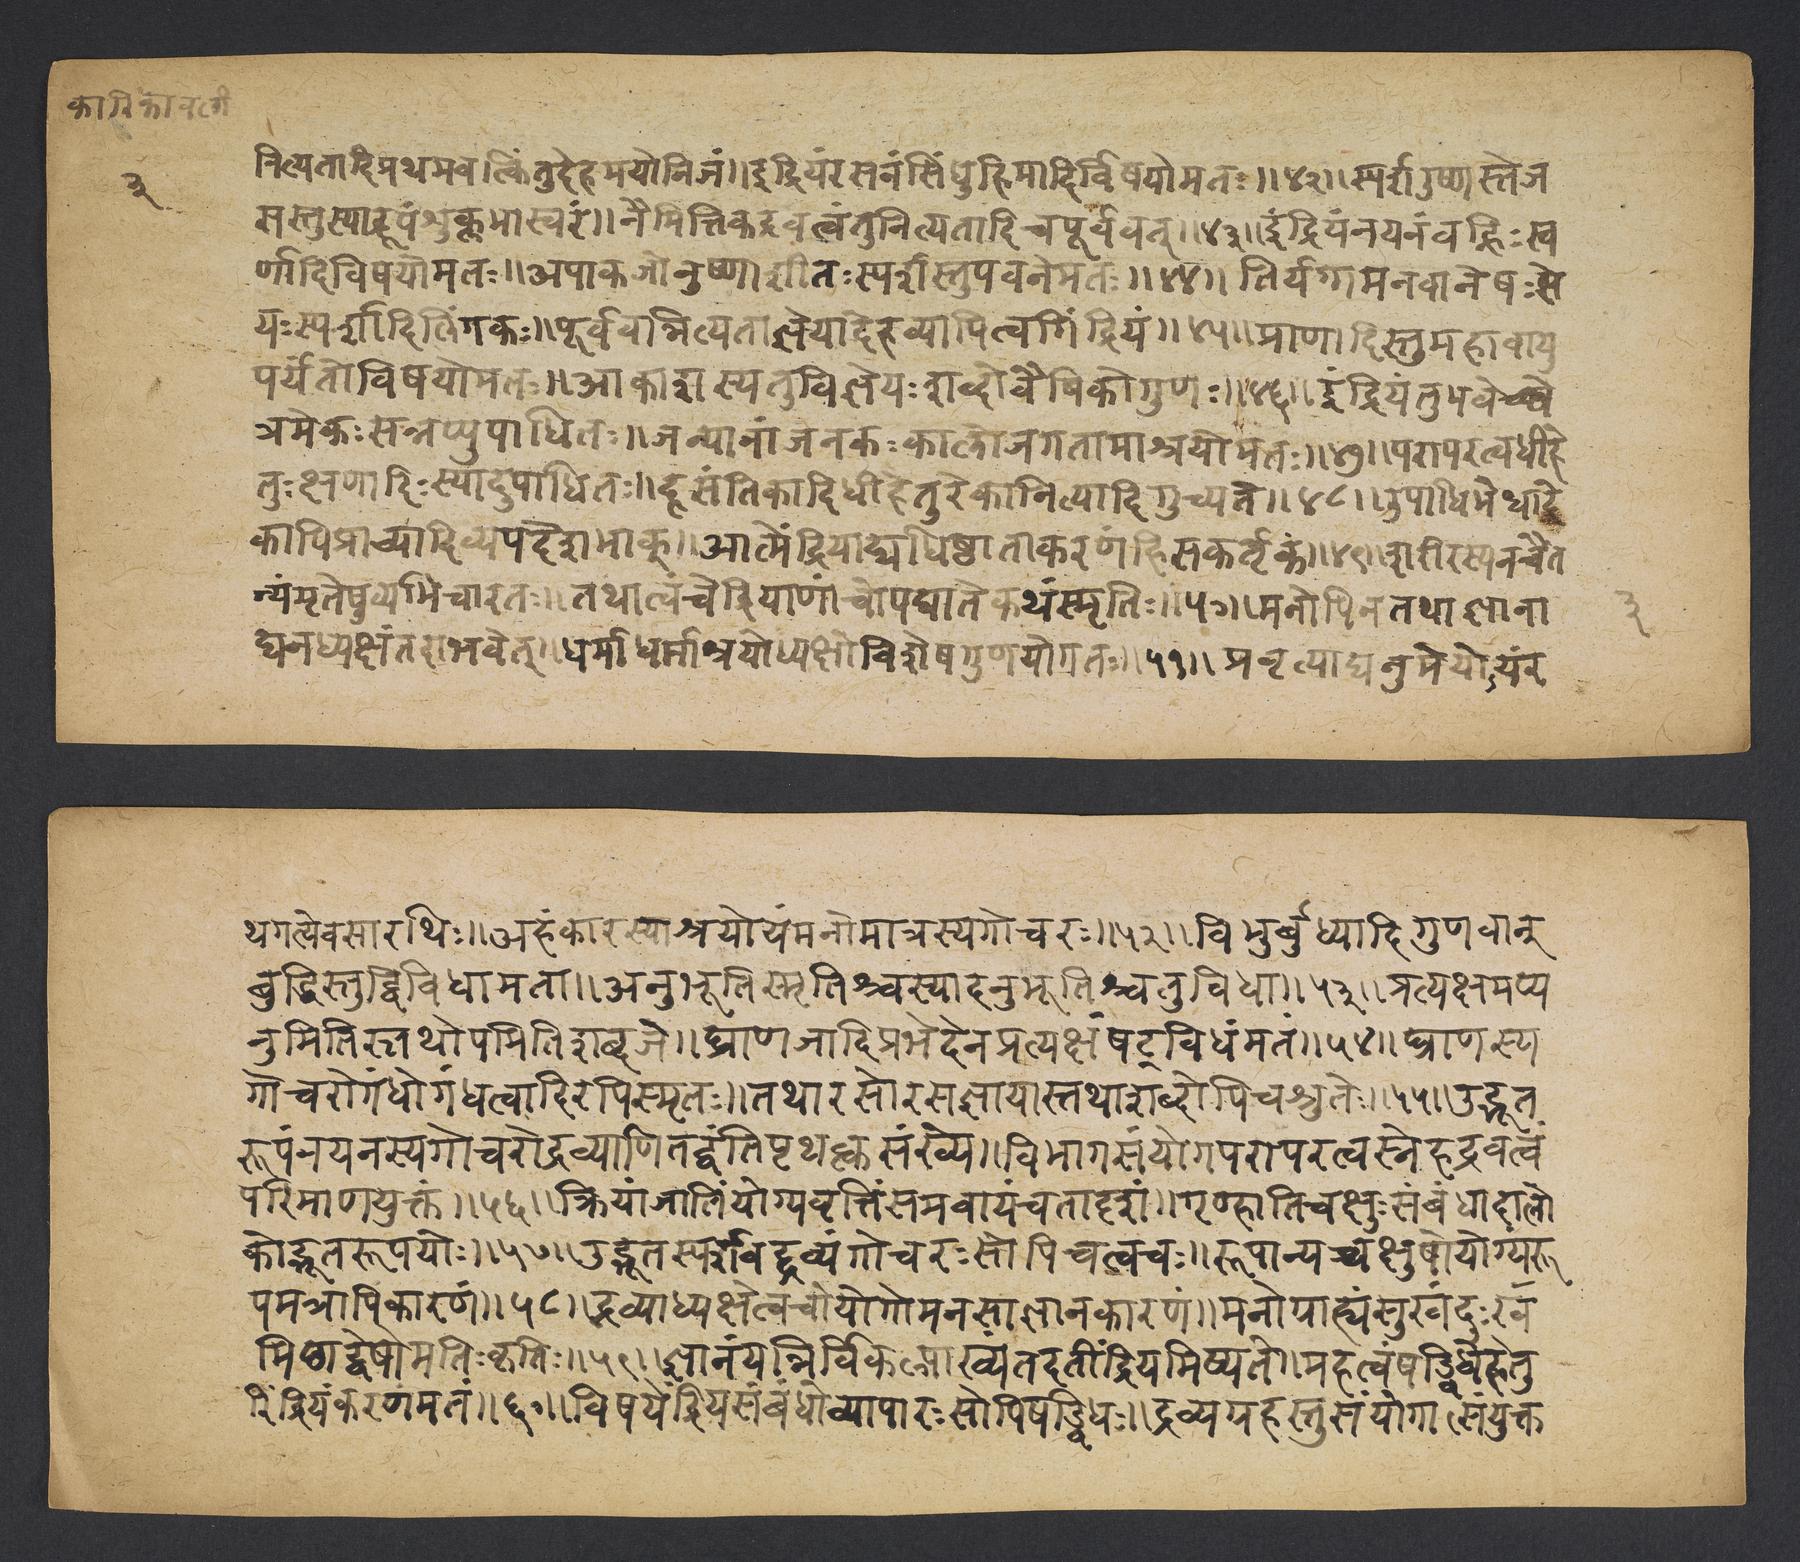 कारिकावली
३
नित्यतादिप्रथमवत्किंतुदेहमयोनिजं॥इंद्रियंरसनंसिंधुहिमादिर्विषयोमतः॥४२॥स्पर्शउष्णस्तेज
सस्तुस्याद्रूपंशुक्लभास्वरं॥नैमित्तिकद्रवत्वंतुनित्यतादिचपूर्ववत्॥४३॥इंद्रियंनयनंवह्निःस्व
र्णादिविषयोमतः॥अपाकजोनुष्णाशीतःस्पर्शस्तुपवनेमतः॥४४॥तिर्यग्गमनवानेषःज्ञे
यःस्पर्शादिलिंगकः॥पूर्ववन्नित्यताज्ञेयादेहव्यापित्वगिंद्रियं॥४५॥प्राणादिस्तुमहावायु
पर्यंतोविषयोमतः॥आकाशस्यतुविज्ञेयःशब्दोवैषिकोगुणः॥४६॥इंद्रियंतुभवेच्छ्रो
त्रमेकःसन्नप्युपाधितः॥जन्यानांजनकःकालोजगतामाश्रयोमतः॥४७॥परापरत्वधीहे
तुःक्षणादिःस्यादुपाधितः॥दूरांतिकादिधीहेतुरेकानित्यादिगुच्यते॥४८॥उपाधिभेदादे
कापिप्राच्यादिव्यपदेशभाक्॥आत्मेंद्रियाद्यधिष्ठाताकरणंहिसकर्तृकं॥४९॥शरीरस्यनचैत
न्यंमृतेषुव्यभिचारतः॥तथात्वंचेंद्रियाणांचोपघातेकथंस्मृतिः॥५०॥मनोपिनतथाज्ञाना
द्यनध्यक्षंतदाभवेत्॥धर्माधर्माश्रयोध्यक्षोविशेषगुणयोगतः॥५१॥प्रवृत्याद्यनुमेयोऽयंर
३
थगत्येवसारथिः॥अहंकारस्याश्रयोयंमनोमात्रस्यगोचरः॥५२॥विभुर्बुध्यादिगुणवान्
बुद्धिस्तुद्विविधामता॥अनुभूतिस्मृतिश्चस्यादनुभूतिश्चतुविधा॥५३॥प्रत्यक्षमप्य
नुमितिस्तथोपमितिशब्दजे॥घ्राणजादिप्रभेदेनप्रत्यक्षंषट्विधंमतं॥५४॥घ्राणस्य
गोचरोगंधोगंधत्वादिरपिस्मृतः॥तथारसोरसज्ञायास्तथाशब्दोपिचश्रुतेः॥५५॥उद्भूत
रूपंनयनस्यगोचरोद्रव्याणितद्वंतिपृथत्कसंख्ये॥विभागसंयोगपरापरत्वस्नेहद्रवत्वं
परिमाणयुक्तं॥५६॥क्रियांजातिंयोग्यवृत्तिंसमवायंचतादृशं॥गृण्हातिचक्षुःसंबंधादालो
कोद्भूतरूपयोः॥५७॥उद्भूतस्पर्शवद्द्रव्यंगोचरःसोपिचत्वचः॥रूपान्यच्चक्षुषोयोग्यंरू
पमत्रापिकारणं॥५८॥द्रव्याध्यक्षेत्वचोयोगोमनसाज्ञानकारणं॥मनोग्राह्यंसुखंदुःख
मिछाद्वेषोमतिःकृतिः॥५९॥ज्ञानंयन्निर्विकल्पाख्यंतदतींद्रियमिष्यते॥महत्वंषड्विधेहेतु
रिंद्रियंकरणंमतं॥६०॥विषयेंद्रियसंबंधोव्यापारःसोपिषड्विधः॥द्रव्यग्रहस्तुसंयोगात्संयुक्त